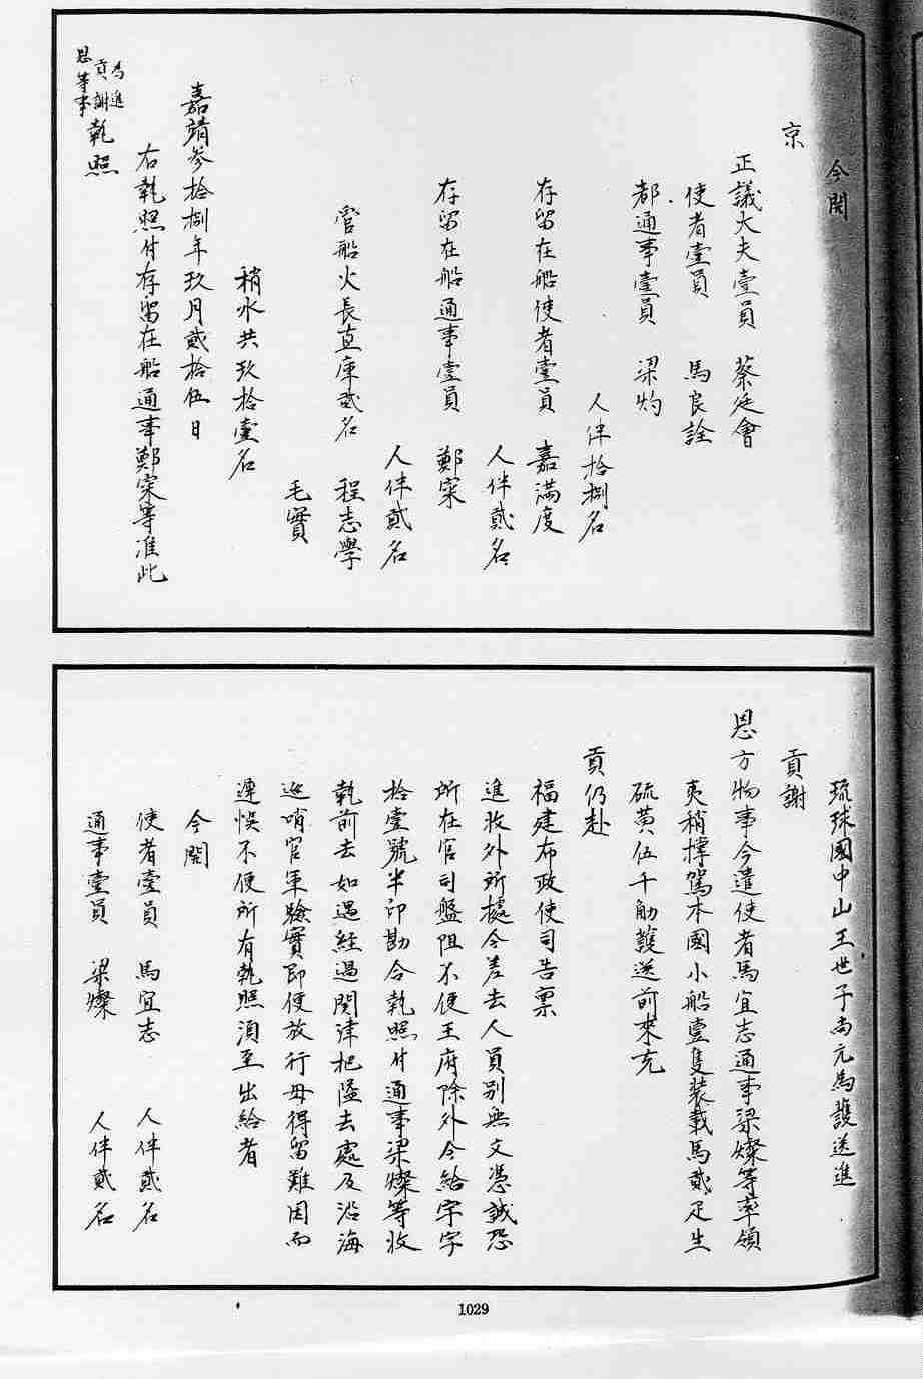 今開
京
正議大夫壹員　蔡廷會
使者壹員　馬良詮
都通事壹員　梁灼
人伴拾捌名
存留在船使者壹員　嘉滿度
人伴貳名
存留在船通事壹員　鄭寀
人伴貳名
管船火長直庫貳名　程志學
毛實
稍水共玖拾壹名
嘉靖參拾捌年玖月貳拾伍日
右執照付存留在船通事鄭寀等准此
為進
貢謝
恩等事
執照
琉球國中山王世子尚元為護送進
貢謝
恩方物事今遣使者馬宜志通事梁燦等率領
夷稍撑駕本國小船壹隻裝載馬貳疋生
硫黄伍千觔護送前來充
貢仍赴
福建布政使司告禀
進收外所據今差去人員别無文憑誠恐
所在官司盤阻不便王府除外今給字字
拾壹號半印勘合執照付通事梁燦等收
執前去如遇經過関津把隘去處及沿海
巡哨官軍驗實即便放行毋得留難因而
遲悮不便所有執照須至出給者
今開
使者壹員　馬宜志　人伴貳名
通事壹員　梁燦　人伴貳名
1029